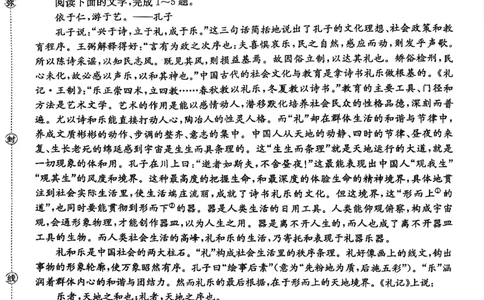 弥
阅读下面的文字,完成1~5题。
依于仁,游于艺。——孔子
孔子说:“兴于诗,立于礼,成于乐。”这三句话简括地说出了孔子的文化理想、社会政策和教
育程序。王弼解释得好:“言有为政之次序也:夫喜惧哀乐,民之自然,感应而动,则发乎声歌。
所以陈诗采谣,以知民志风。既见其风,则损益基焉。故因俗立制,以达其礼也。矫俗检刑,民
心未化,故必感以声乐,以和其神也。”中国古代的社会文化与教育是拿诗书礼乐做根基的。《礼
记·王制》:“乐正崇四术,立四教……春秋教以礼乐,冬夏教以诗书。”教育的主要工具、门径和
方法是艺术文学。艺术的作用是能以感情动人,潜移默化培养社会民众的性格品德,深刻而普
遍。尤以诗和乐能直接打动人心,陶冶人的性灵人格。而“礼”却在群体生活的和谐与节律中,
养成文质彬彬的动作、步调的整齐、意志的集中。中国人从天地的动静、四时的节律、昼夜的来
封
复、生长老死的绵延感到宇宙是生生而具条理的。这“生生而条理”就是天地运行的大道,就是
一切现象的体和用。孔子在川上曰:“逝者如斯夫,不舍昼夜!”这最能表现出中国人“观我生”
“观其生”的风度和境界。这种最高度的把握生命,和最深度的体验生命的精神境界,具体地贯
注到社会实际生活里,使生活端庄流丽,成就了诗书礼乐的文化。但这境界,这“形而上①的
道”,也同时要能贯彻到形而下②的器。器是人类生活的日用工具。人类能仰观俯察,构成宇宙
观,会通形象物理,才能创作器皿,以为人生之用。器是离不开人生的,而人也成了离不开器皿
工具的生物。而人类社会生活的高峰,礼和乐的生活,乃寄托和表现于礼器乐器。
礼和乐是中国社会的两大柱石。“礼”构成社会生活里的秩序条理。礼好像画上的线文,钩出
事物的形象轮廓,使万象昭然有序。孔子曰“绘事后素”(意为“先粉地为质,后施五彩”)。“乐”涵
线
润着群体内心的和谐与团结力。然而礼乐的最后根据,在于形而上的天地境界。《礼记》上说:
乐者,天地之和也;礼者,天地之序也。